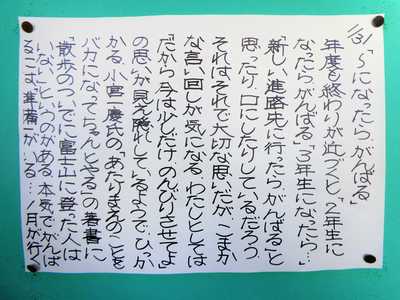 1/31「～になったら、がんばる」
年度も終わりが近づくと、「２年生に
なったらがんばる」「３年生になったら…」
「新しい進路先に行ったらがんばる」と
思ったり、口にしたりしているだろう。
それはそれで大切な思いだが、こまか
な言い回しが気になる。わたしとしては
「だから、今は少しだけ、のんびりさせてよ」
の思いが見え隠れしているようで、ひっか
かる。小宮一慶氏の『あたりまえのことを
バカになってちゃんとやる』の著書に
「散歩のついでに富士山に登った人は
いない」というのがある。本気でがんば
るには、準備が一がいる…１月が行く